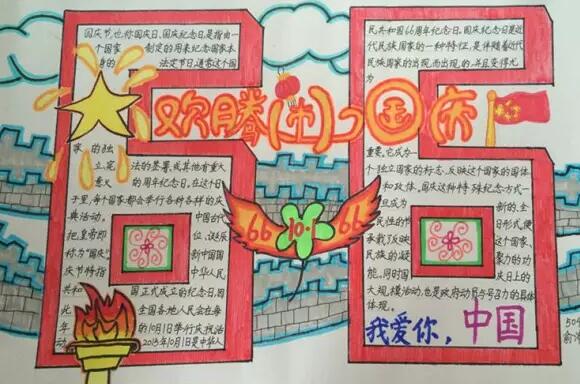 国庆节,也称国庆日,国庆纪念日,是指由一
个国家 制定的用来纪念国家本
身的 法定节日,通常这个国
欢腾 国庆
家的独
立、宪 法的签署,或其他有重大
意义 的周年纪念日。在这个日
子里,每个国家都会举行各种各样的庆
典活动。 中国古代
把皇帝即 位,诞辰
称为“国庆” 新中国国
庆节特指 中华人民
共和 国正式成立的纪念日,因
此 全国各地人民会在每
年 的10月1日举行庆祝活
动 2015年10月1日是中华人
民共和国66周年纪念日。国庆纪念日是近
代民族国家的一种特征,是伴随着近代
民族国家的出现而出现的,并且变得尤
为
重要。它成为
一个独立国家的标志,反映这个国家的国体
和政体。国庆这种特殊纪念方式一
旦成为 新的、全
民性的节 日形式,便
承载了反映 这个国家、
民族的凝 聚力的功
能。同时国 庆日上的
大规模活动,也是政府动员与号召力的具体
体现。
66 10·1 66
我爱你,中国